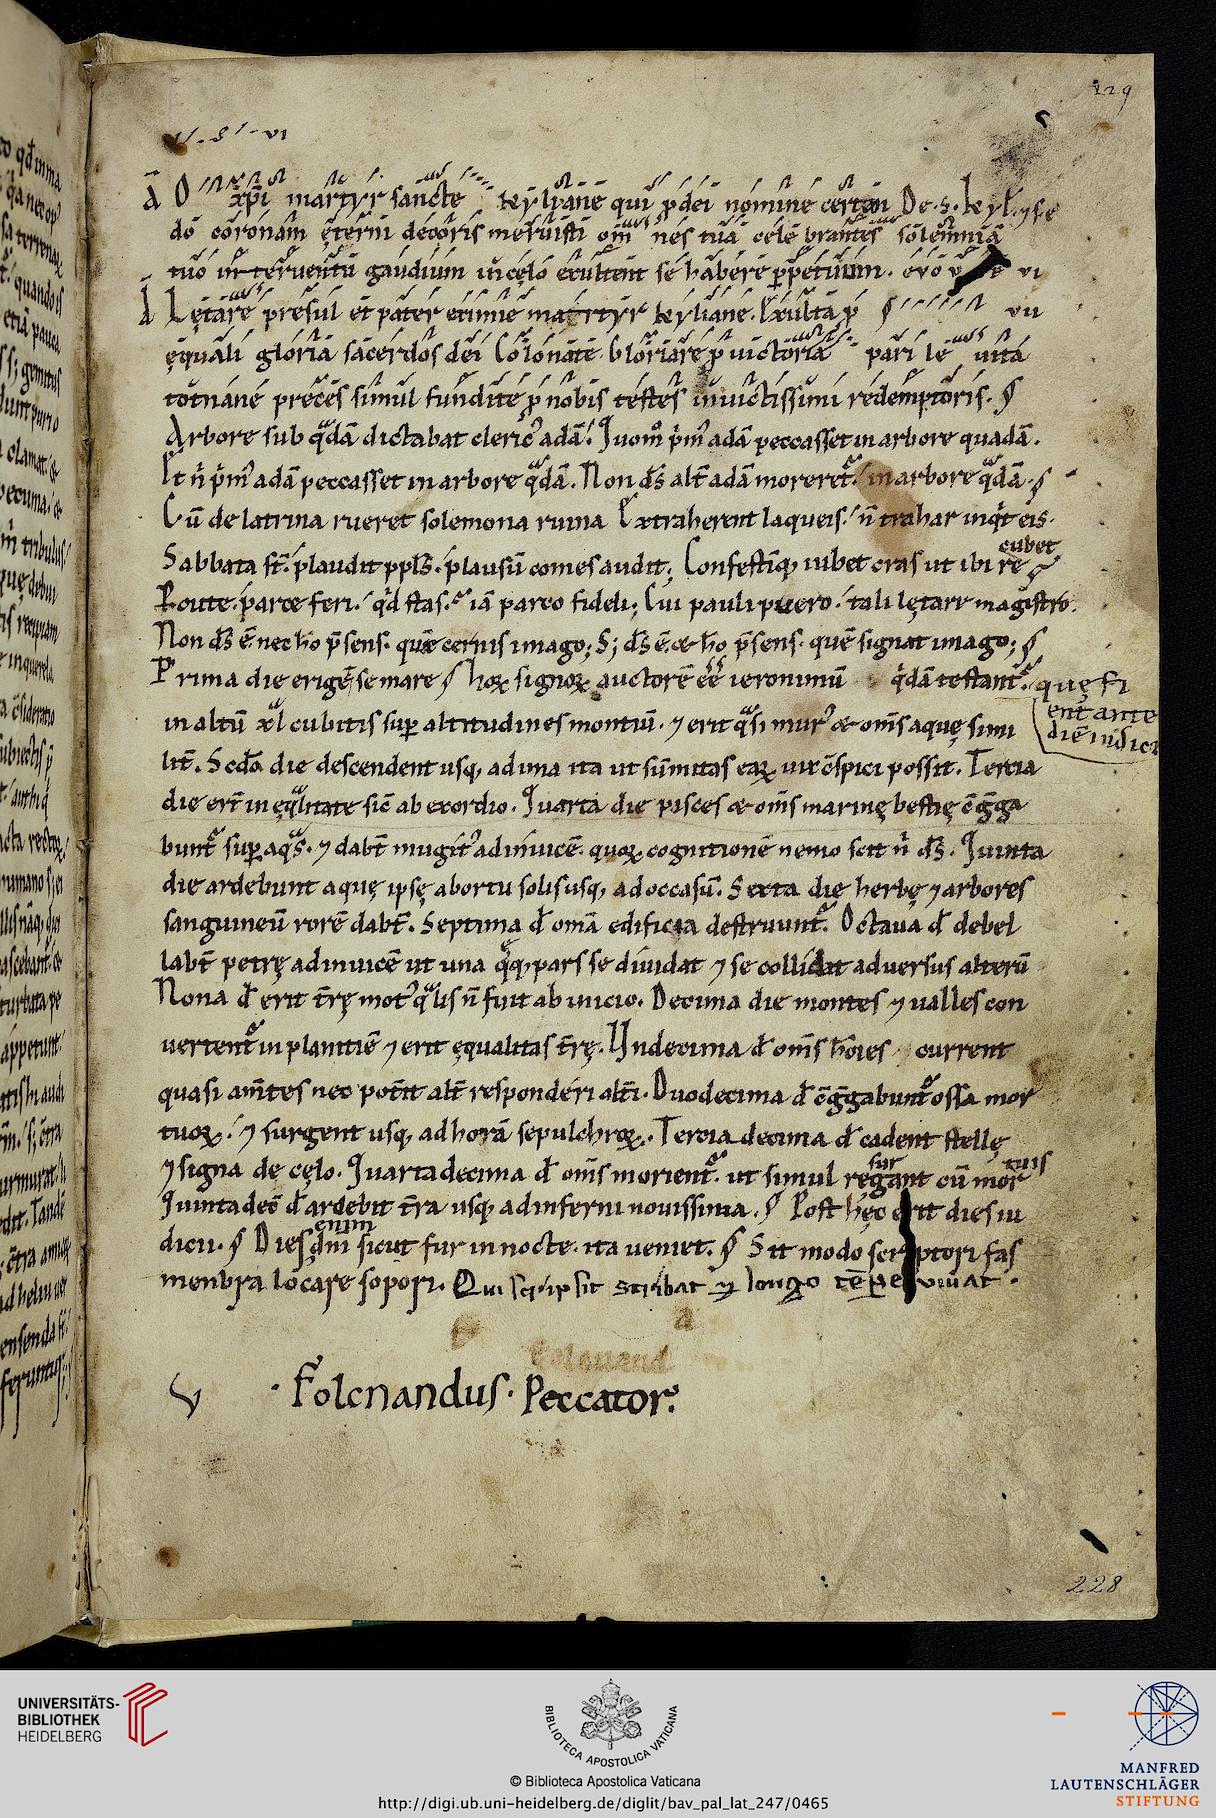 229
A O xp̄i martyr sancte kyliane qui p dei nomine certan De .s. kyl. ⁊ se
do coronam ęterni decoris meruisti om nes tua cele brantes solemnia
tuo in teruentu gaudium in cęlo exultent se habere p̱petuum. evo v e vi
A Lętare presul et pater eximie martyr kyliane. Exulta p vii
ęquali gloria sacerdos dei Colonate. gloriare p victoria pari le uita
totnane preces simul fundite p nobis testes inuictissimi redemptoris. §
Arbore sub q̄dā dictabat cleric' adā. Quom̊ p̄m' adā peccasset in arbore quadā.
Et n̄ p̄m' adā peccasset in arbore q̄dā. Non d̄s alt̄ adā moreret᷑ in arbore q̄dā. §
Cū de latrina rueret solemona ruina Extraherent laqueis. n̄ trahar inq̇t eis.
cubet
Sabbata st̄. plaudit ppl̄s. plausū comes audit; Confestīq, iubet cras ut ibi re
Route. parce feri. q̇d stas. iā parco fideli; Cui pauli puero. tali lętare magistro.
Non d̄s ē. nec ho p̄sens. quē cernis imago; S; d̄s ē. & ho p̄sens. quē signat imago; §
Prima die eriget̄ se mare § hoꝝ signoꝝ auctorē ēē ieronimū q̇dā testant᷑. quę fi
ent ante
in altū xl cubitis sup altitudines montiū. ⁊ erit q̄si mur' & om̄s aquę simi
diē iudicii
lit̄. Scd̄a die descendent usq, ad ima ita ut sūmitas eaꝝ uix c̄spici possit. Tertia
die erit̄ in ęq̄litate sic̄ ab exordio. Quarta die pisces & om̄s marinę bestię c̄ḡga
bunt᷑ sup aq̄s. ⁊ dabt̄ mugit' adinuicē. quoꝝ cognitionē nemo scit n̄ d̄s. Quinta
die ardebunt aquę ipsę ab ortu solis usq, ad occasū. Sexta die herbę ⁊ arbores
sanguineū rorē dabt̄. Septima d̄ omā edificia destruunt᷑. Octaua d̄ debel
labt̄ petrę adinuicē ut una q̄q, pars se diuidat ⁊ se collidat aduersus alterū
Nona d̄ erit t̄rę mot' q̄lis n̄ fuit ab inicio. Decima die montes ⁊ ualles con
uertent᷑ in planitiē ⁊ erit ęqualitas t̄rę. Undecima d̄ om̄s hoīes current
quasi am̄tes nec pot̄it alt̄ responderi alt̄i. Duodecima d̄ c̄ḡgabunt᷑ ossa mor
tuoꝝ. ⁊ surgent usq, ad horā sepulchroꝝ. Tercia decima d̄ cadent stellę
⁊ signa de cęlo. Quarta decima d̄ om̄s morient᷑. ut simul re sur gant cū mor tuis
Quinta dec̄ d̄ ardebit t̄ra usq, ad inferni nouissima. § Post hęc erit dies iu
enim
dicii. § Dies dn̄i sicut fur in nocte. ita ueniet. § Sit modo scriptori fas
menbra locare sopori. Qui scripsit scribat ⁊ longo tēpe uiuat.
Folcnandus. Peccator.
228
UNIVERSITÄTS-
BIBLIOTHEK
HEIDELBERG
BIBLIOTECA APOSTOLICA VATICANA
© Biblioteca Apostolica Vaticana
http://digi.ub.uni-heidelberg.de/diglit/bav_pal_lat_247/0465
MANFRED
LAUTENSCHLÄGER
STIFTUNG